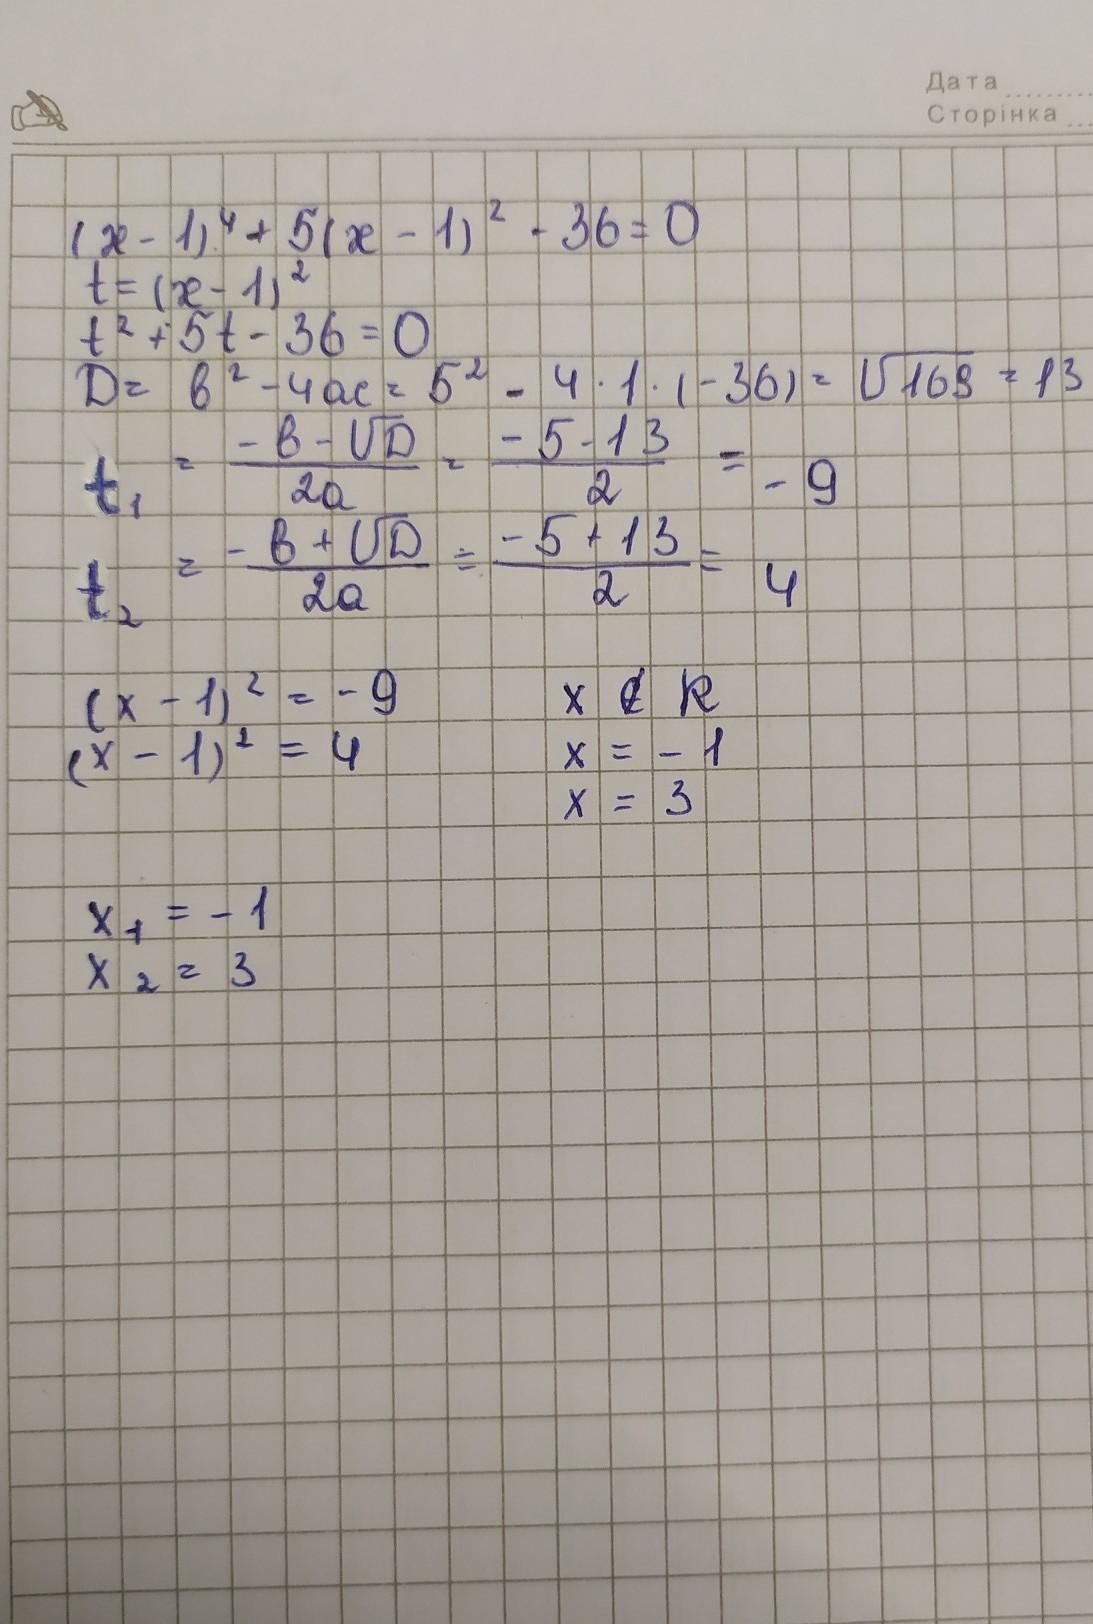 Дата
Сторінка
(x - 1)⁴ + 5(x - 1)² - 36 = 0
t = (x - 1)²
t² + 5t - 36 = 0
D = b² - 4ac = 5² - 4 · 1 · (-36) = √169 = 13
t₁ = (-b - √D)/2a = (-5 - 13)/2 = -9
t₂ = (-b + √D)/2a = (-5 + 13)/2 = 4
(x - 1)² = -9 x ∉ R
(x - 1)² = 4 x = -1
x = 3
x₁ = -1
x₂ = 3